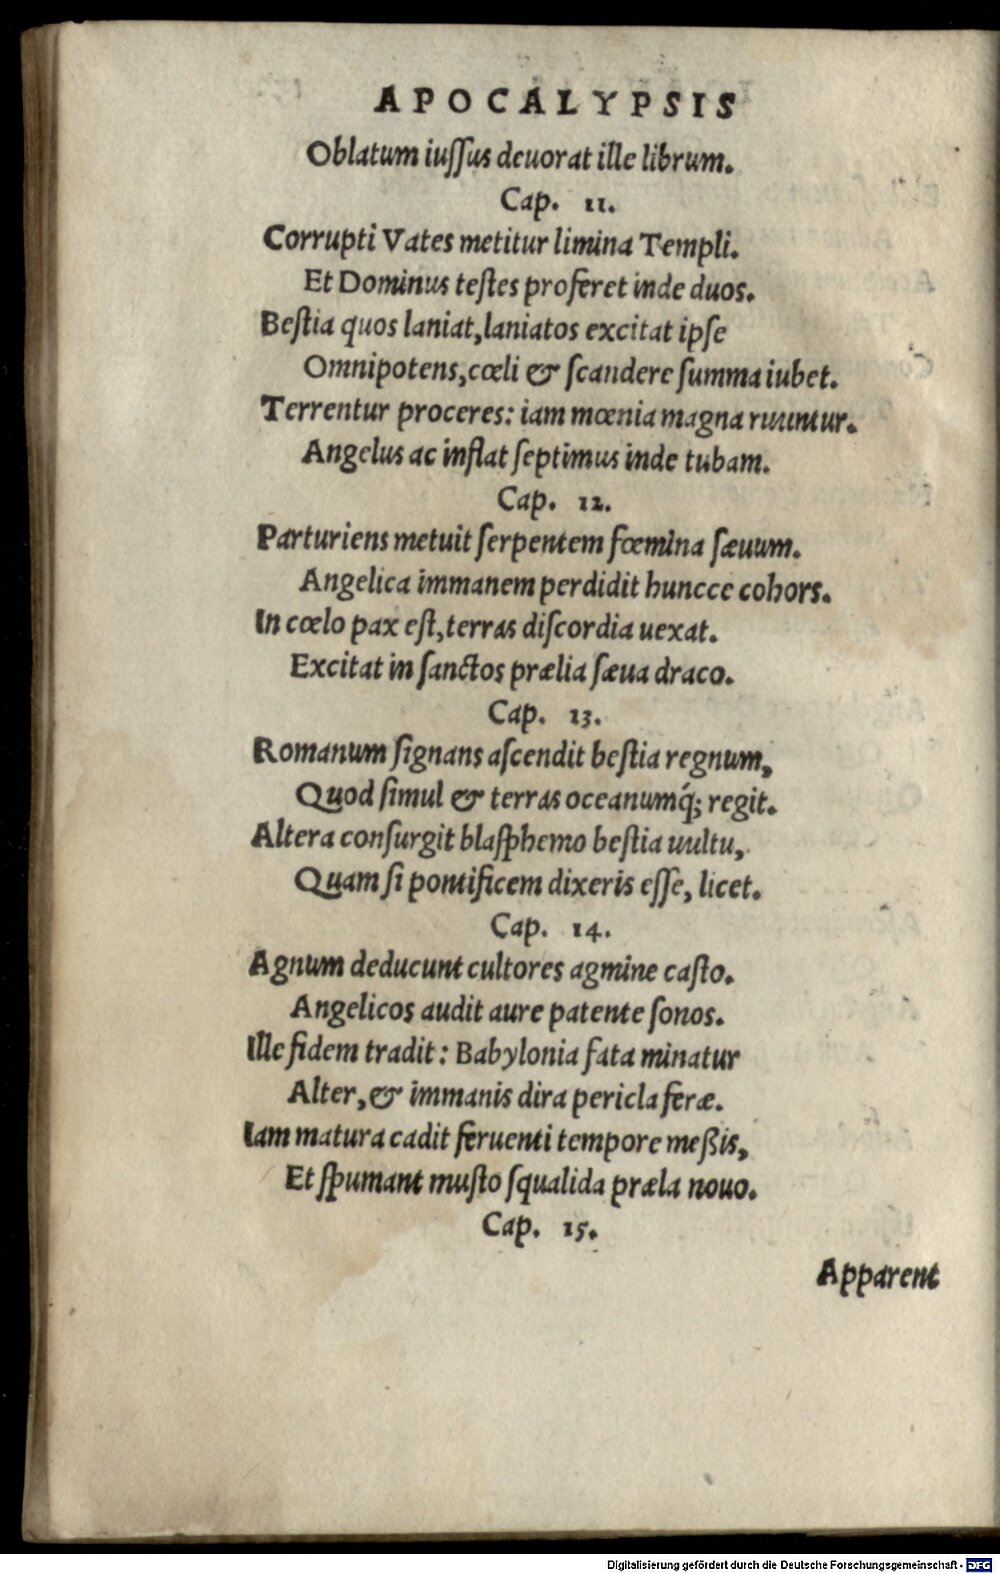 APOCALYPSIS
Oblatum iuſſus deuorat ille librum.
Cap. 11.
Corrupti Vates metitur limina Templi.
Et Dominus teſtes proferet inde duos.
Beſtia quos laniat, laniatos excitat ipſe
Omnipotens, cœli & ſcandere ſumma iubet.
Terrentur proceres: iam mœnia magna ruuntur.
Angelus ac inflat ſeptimus inde tubam.
Cap. 12.
Parturiens metuit ſerpentem fœmina ſæuum.
Angelica immanem perdidit huncce cohors.
In cœlo pax eſt, terras diſcordia uexat.
Excitat in ſanctos prælia ſæua draco.
Cap. 13.
Romanum ſignans aſcendit beſtia regnum,
Quod ſimul & terras oceanumq́; regit.
Altera conſurgit blaſphemo beſtia uultu,
Quam ſi pontificem dixeris eſſe, licet.
Cap. 14.
Agnum deducunt cultores agmine caſto.
Angelicos audit aure patente ſonos.
Ille fidem tradit: Babylonia fata minatur
Alter, & immanis dira pericla feræ.
Iam matura cadit feruenti tempore meßis,
Et ſpumant muſto ſqualida præla nouo.
Cap. 15.
Apparent
Digitalisierung gefördert durch die Deutsche Forschungsgemeinschaft - DFG